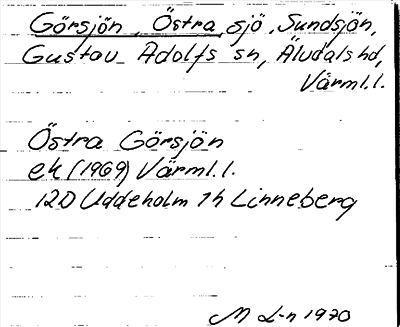 Görsjön, Östra, sjö, Sundsjön,
Gustav Adolfs sn, Älvdals hd,
Värml.l.
Östra Görsjön
ek (1969) Värml.l.
12D Uddeholm 7h Linneberg
M L-n 1970